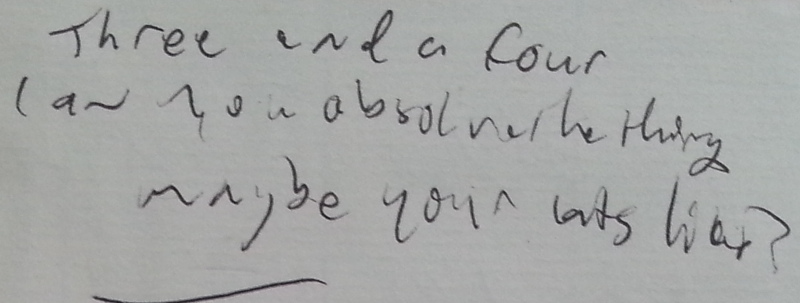 Three and a four
Can you absolve the thing
maybe your